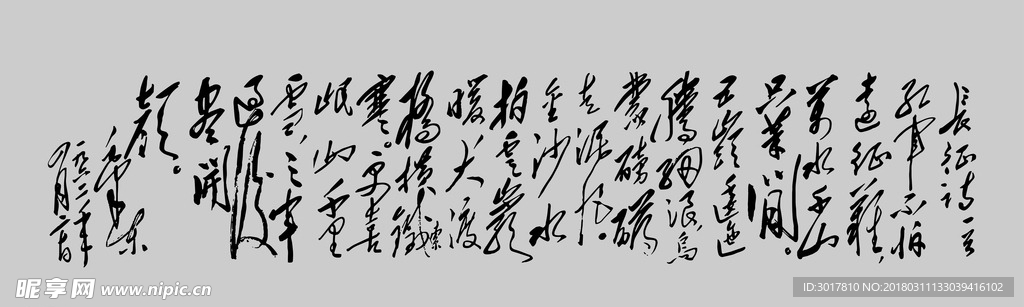 長征詩一首
紅軍不怕
遠征難，
萬水千山
只等閒。
五嶺逶迤
騰細浪，烏
蒙磅礴
走泥丸。
金沙水
拍雲崖
暖，大渡
橋橫鐵索
寒。更喜
岷山千里
雪，三軍
過後
盡開
顏。
毛澤東
一九六二年
四月二十日
昵享网 www.nipic.cn
ID:3017810 NO:20180311133039416102